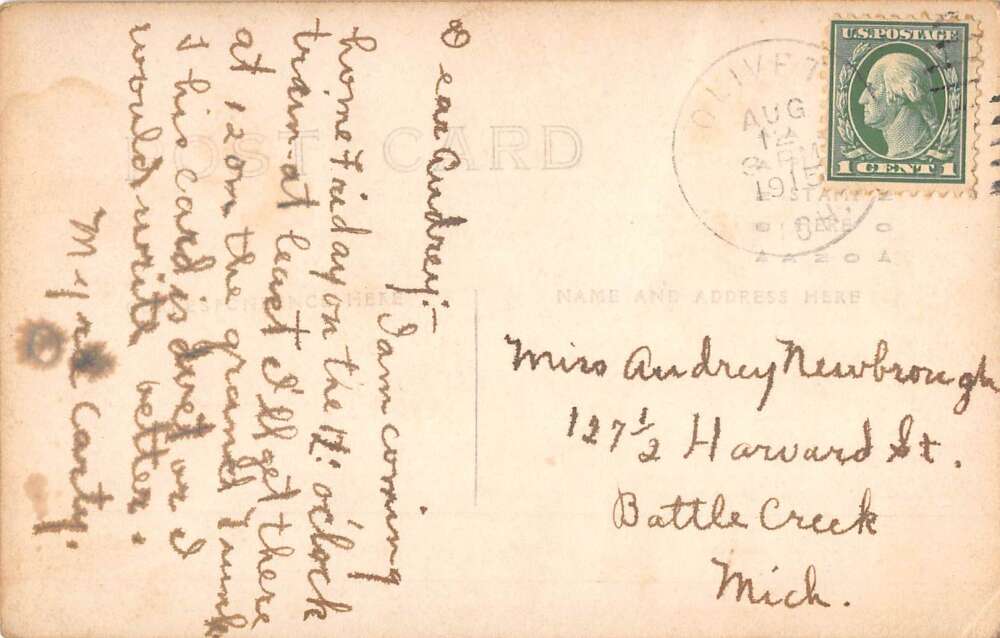 POST CARD
CORRESPONDENCE HERE
NAME AND ADDRESS HERE
U.S. POSTAGE
1 CENT 1
OLIVET
AUG
12
1915
STAMP
HERE
AZO
Dear Audrey:—
I am coming
home Friday on the 12: o'clock
train – at least I'll get there
at 12 on the grand Trunk
This card is dirty or I
would write better.
Myrna Carty.
Miss Audrey Newbrough
127 1/2 Harvard St.
Battle Creek
Mich.